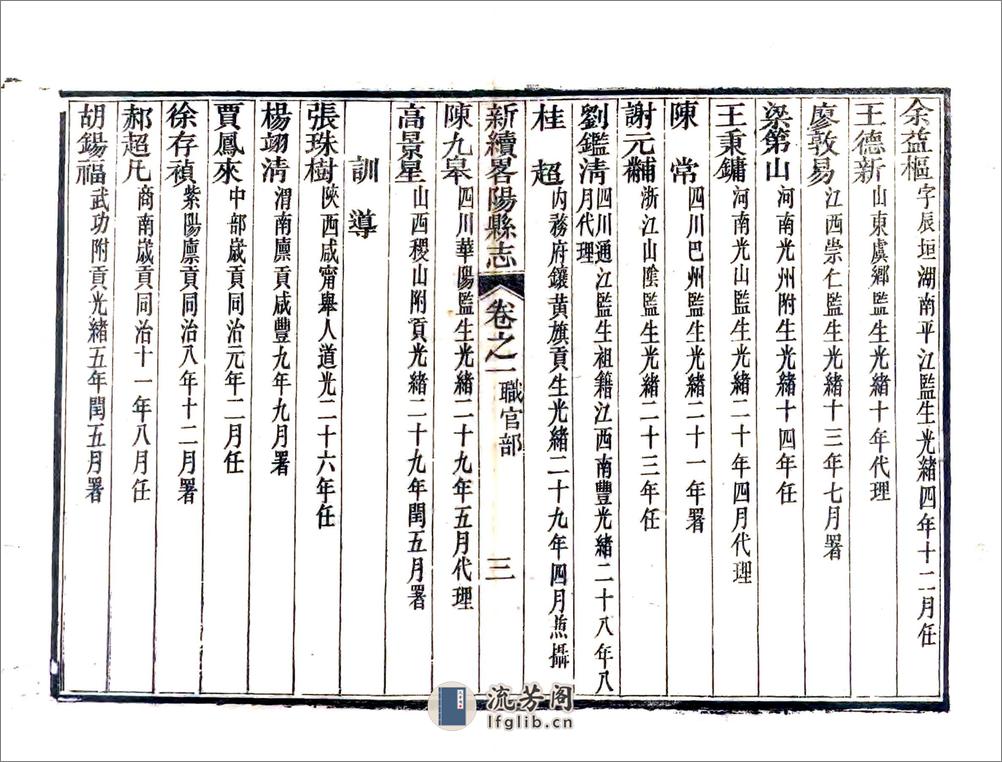 余益樞字辰垣湖南平江監生光緒四年十二月任
王德新山東虞鄉監生光緒十年代理
廖敦易江西崇仁監生光緒十三年七月署
梁第山河南光州附生光緒十四年任
王秉鏞河南光山監生光緒二十年四月代理
陳常四川巴州監生光緒二十一年署
謝元黼浙江山陰監生光緒二十三年任
劉鑑清四川通江監生祖籍江西南豐光緒二十八年八
月代理
桂超內務府鑲黃旗貢生光緒二十九年四月兼攝
新續畧陽縣志 卷之一 職官部 三
陳九皋四川華陽監生光緒二十九年五月代理
高景星山西稷山附貢光緒二十九年閏五月署
訓導
張珠樹陝西咸甯舉人道光二十六年任
楊翊清渭南廩貢咸豐九年九月署
賈鳳來中部歲貢同治元年二月任
徐存禎紫陽廩貢同治八年十二月署
郝超凡商南歲貢同治十一年八月任
胡錫福武功附貢光緒五年閏五月署
流芳阁
lfglib.cn